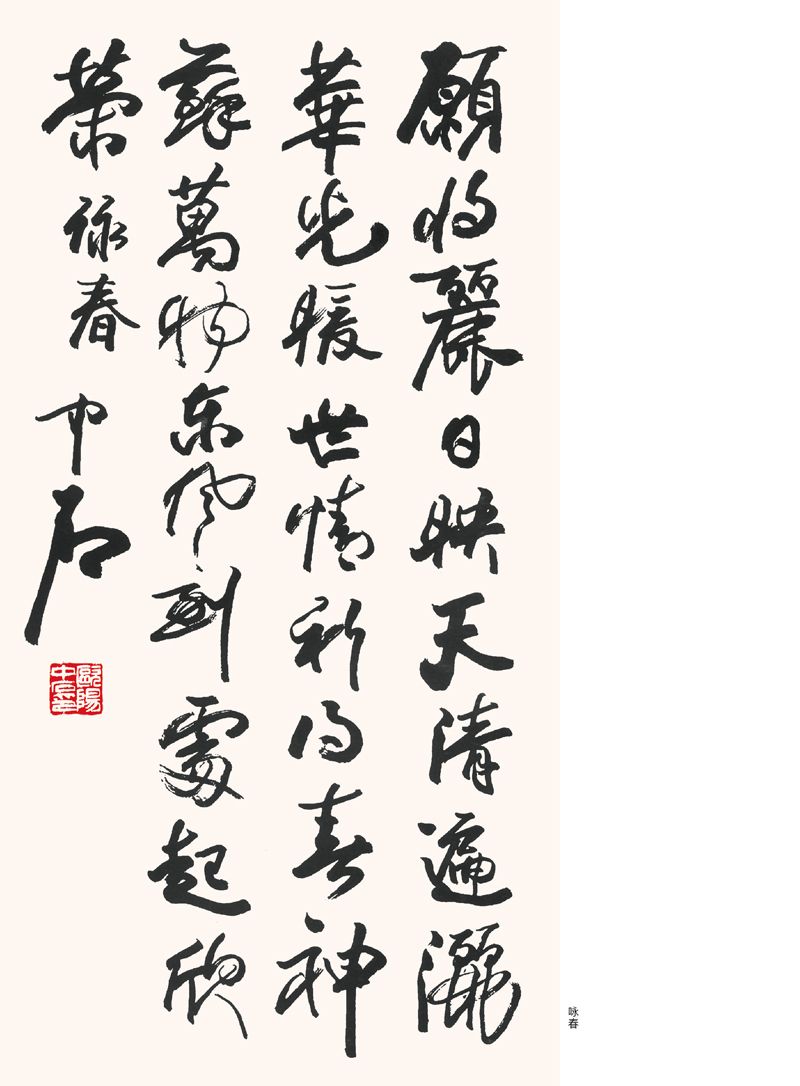 願將麗日映天清遍灑
華光暖世情祈得春神
蘇萬物東風到處起欣
榮 詠春 中石
歐陽
中石
咏春